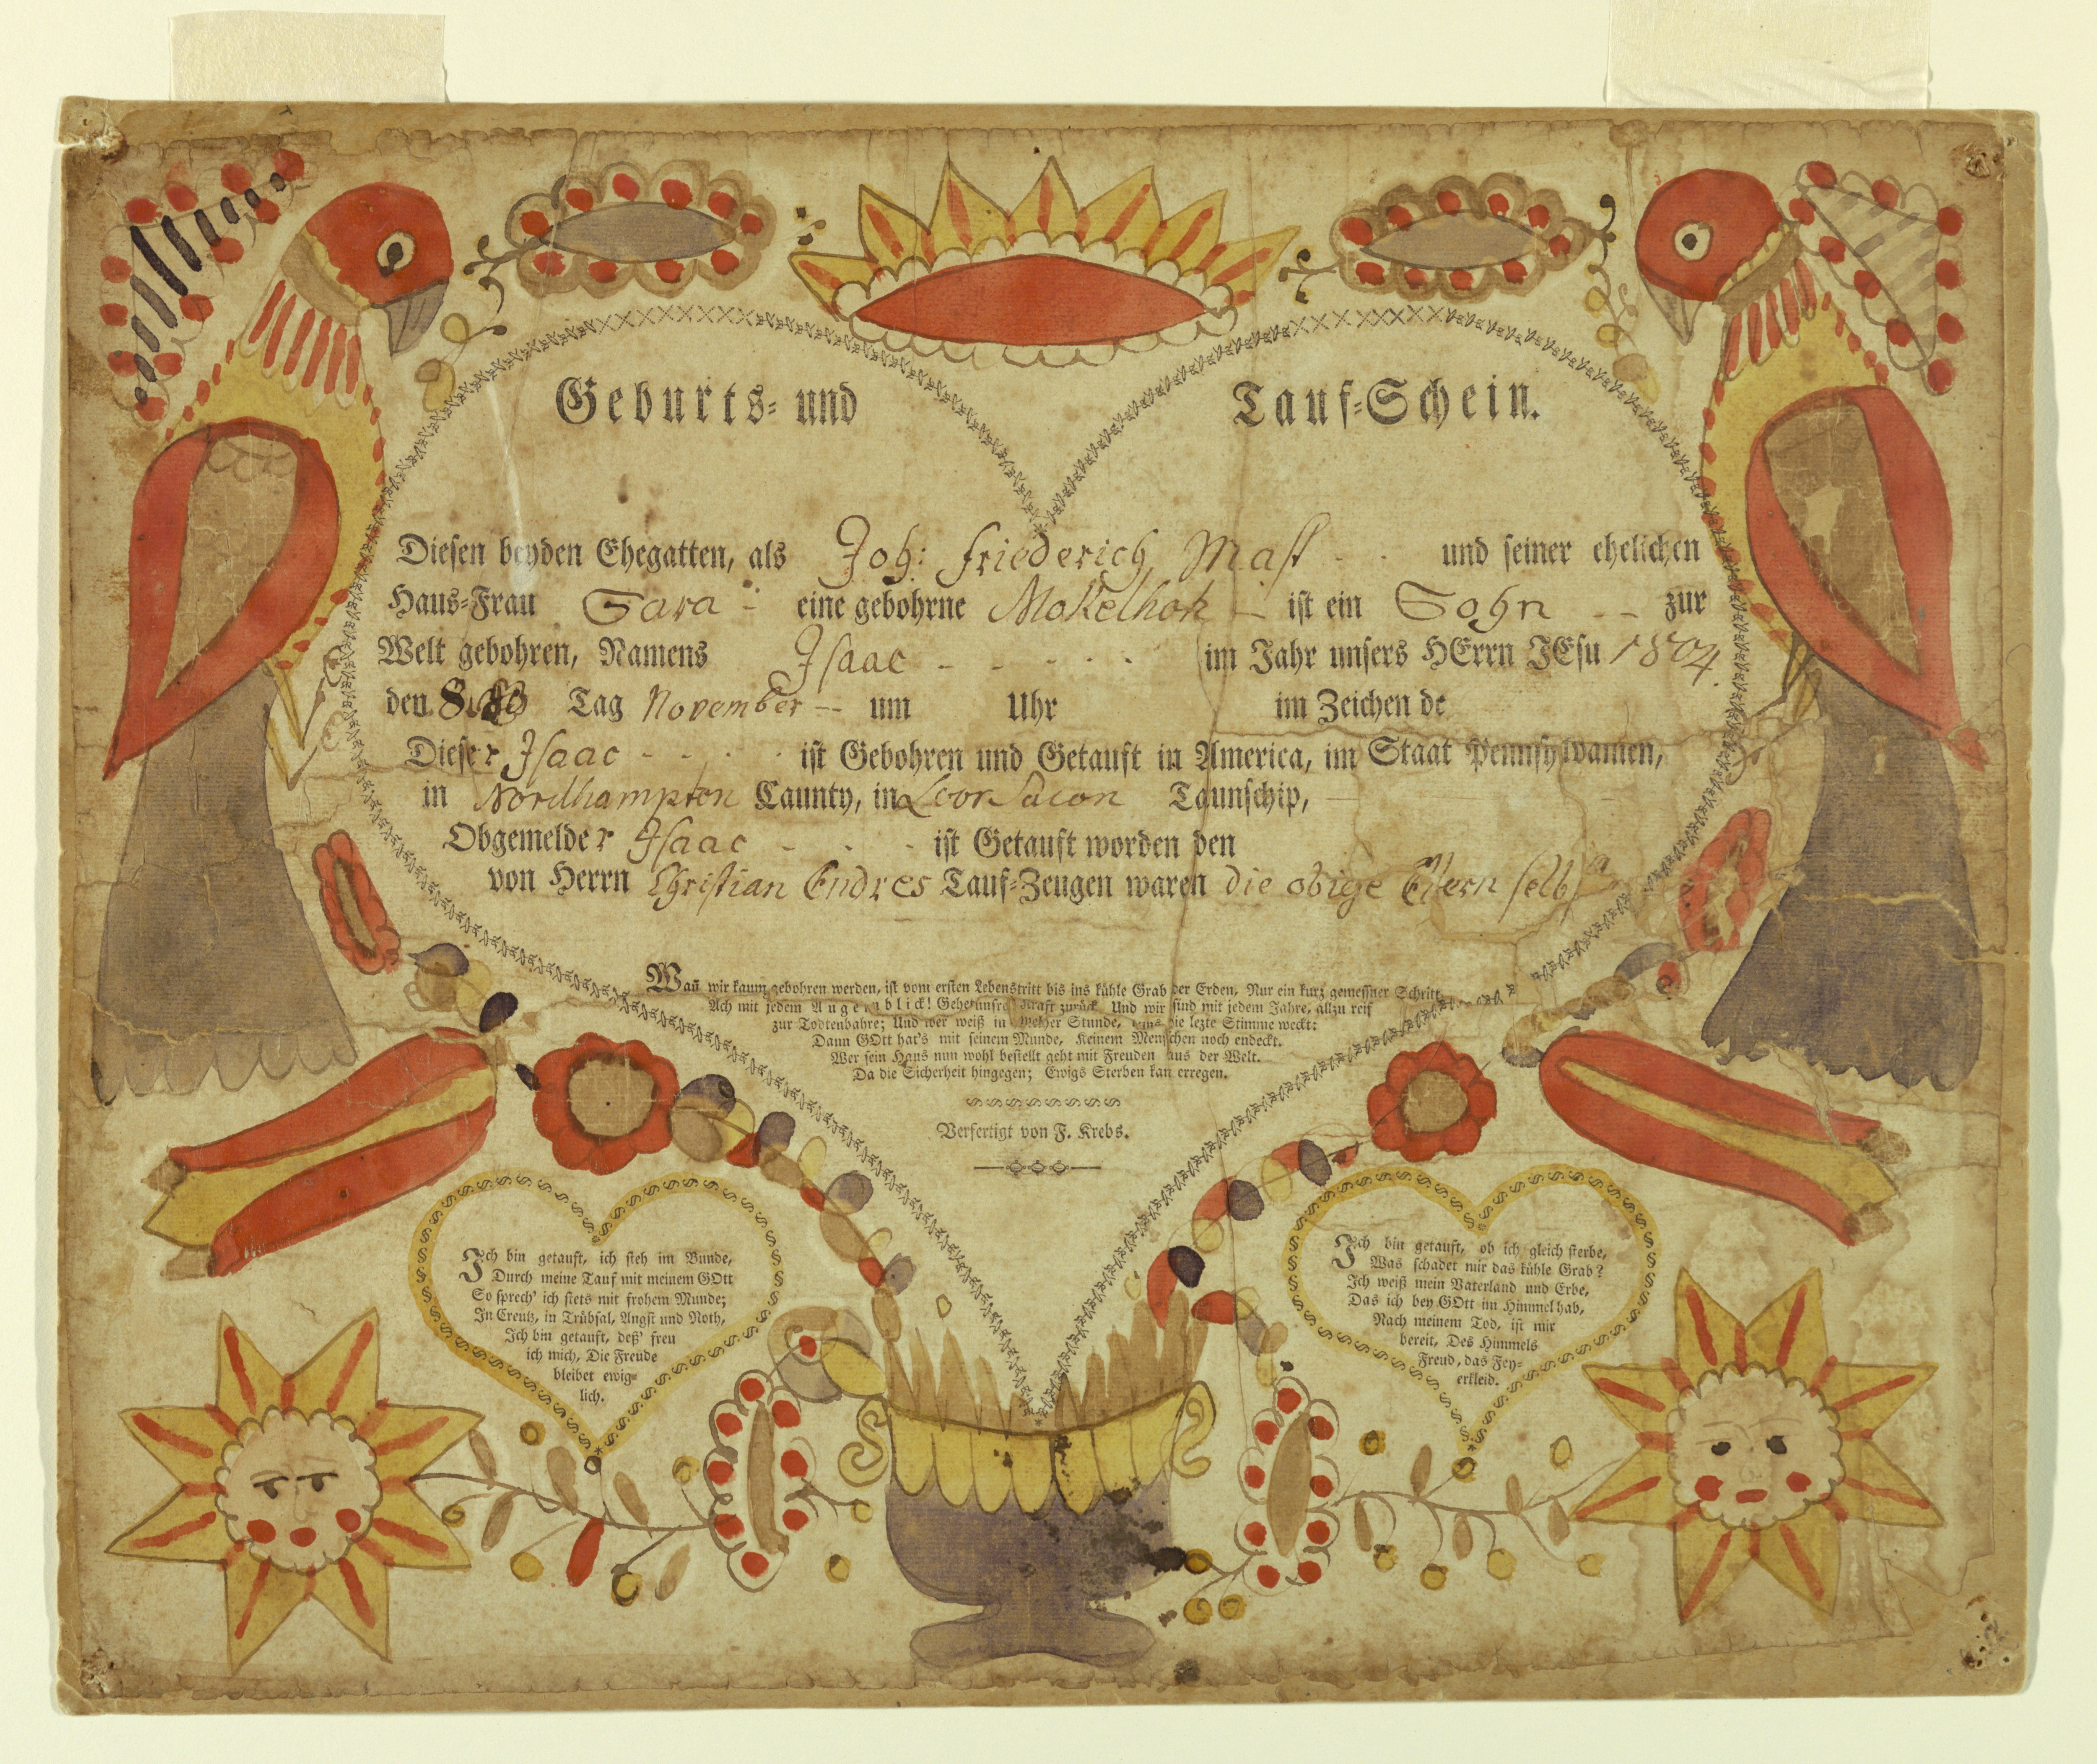 Geburts- und Tauf-Schein.
Diesen beyden Ehegatten, als Joh: Friederich Mast und seiner ehelichen
Haus-Frau Sara eine gebohrne ist ein Sohn zur
Welt gebohren, Namens Isaac im Jahr unsers HErrn JEsu 1804.
den Tag November um Uhr im Zeichen de
Dieser Isaac ist Gebohren und Getauft in America, im Staat Pennsylvanien,
in Nordhampton Caunty, in Taunschip,
Obgemelder Isaac ist Getauft worden den
von Herrn Christian Endres Tauf-Zeugen waren die obige Eltern selbst
Wañ wir kaum gebohren werden, ist vom ersten Lebenstritt bis ins kühle Grab der Erden, Nur ein kurz gemeßner Schritt,
Ach mit jedem Augenblick! Gehet unsre Kraft zurück Und wir sind mit jedem Jahre, allzu reif
zur Todtenbahre; Und wer weiß in welcher Stunde, uns die lezte Stimme weckt:
Dann GOtt hat's mit seinem Munde, Keinem Menschen noch endeckt.
Wer sein Haus nun wohl bestellt geht mit Freuden aus der Welt.
Da die Sicherheit hingegen; Ewigs Sterben kan erregen.
Verfertigt von F. Krebs.
Ich bin getauft, ich steh im Bunde,
Durch meine Tauf mit meinem GOtt
So sprech' ich stets mit frohem Munde;
In Creutz, in Trübsal, Angst und Noth,
Ich bin getauft, deß' freu
ich mich, Die Freude
bleibet ewig-
lich.
Ich bin getauft, ob ich gleich sterbe,
Was schadet mir das kühle Grab?
Ich weiß mein Vaterland und Erbe,
Das ich bey GOtt im Himmel hab,
Nach meinem Tod, ist mir
bereit, Des Himmels
Freud, das Fey-
erkleid.